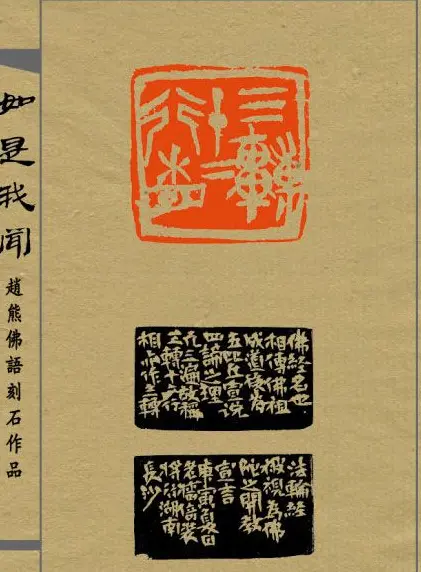 如是我聞
趙熊佛語刻石作品
三轉
十二
行相
佛經名也
相傳佛祖
成道後為
五比丘宣説
四諦之理
凡三遍故稱
三轉十二行
相亦作三轉
法輪經
被視為佛
陀之開教
宣言
庚寅夏日
老熊裝
將行湖南
長沙